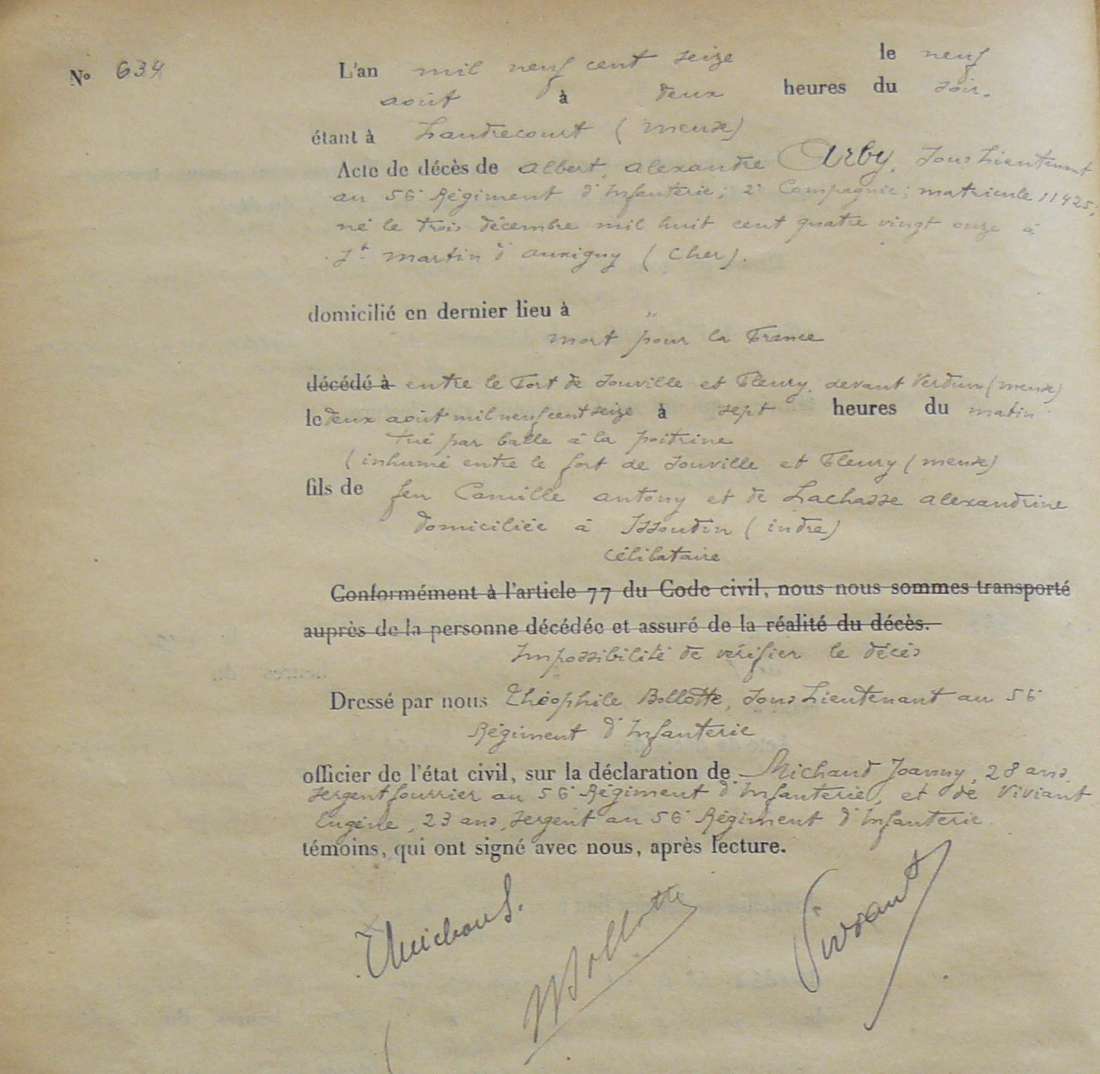 N° 634
L'an mil neuf cent seize le neuf
août à deux heures du soir.
étant à Landrecourt (Meuse)
Acte de décès de Albert, Alexandre Arby, Sous Lieutenant
au 56e Régiment d'Infanterie; 2e Compagnie; matricule 11425;
né le trois décembre mil huit cent quatre vingt onze à
St Martin d'Auxigny (Cher).
domicilié en dernier lieu à "
mort pour la France
décédé à entre le Fort de Souville et Fleury, devant Verdun (Meuse)
le deux août mil neuf cent seize à sept heures du matin
tué par balle à la poitrine
(inhumé entre le fort de Souville et Fleury (Meuse)
fils de feu Camille Antony et de Lachasse Alexandrine
domiciliée à Issoudin (Indre)
célibataire
Conformément à l'article 77 du Code civil, nous nous sommes transporté
auprès de la personne décédée et assuré de la réalité du décès.
Impossibilité de vérifier le décès
Dressé par nous Théophile Bollotte, Sous Lieutenant au 56e
Régiment d'Infanterie
officier de l'état civil, sur la déclaration de Michaud Joanny, 28 ans,
sergent fourrier au 56e Régiment d'Infanterie, et de Viviant
Eugène, 23 ans, sergent au 56e Régiment d'Infanterie
témoins, qui ont signé avec nous, après lecture.
Michaud J.
Bollotte
Viviant